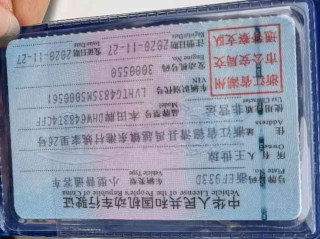 中华人民共和国机动车行驶证
Vehicle License of the People's Republic of China
号牌号码 浙EF933D 车辆类型 小型普通客车
Plate No. Vehicle Type
所有人 王世
Owner
住址 浙江省德清县禹越镇 里26号
Address
使用性质 非营运 品牌型号 本田牌
Use Character Model
浙江省湖州
市公安局交
通警察支队
车辆识别代号 LVHTG4835M5000561
VIN
发动机号码 3000550
注册日期 2020-11-27 发证日期 2020-11-27
Register Date Issue Date